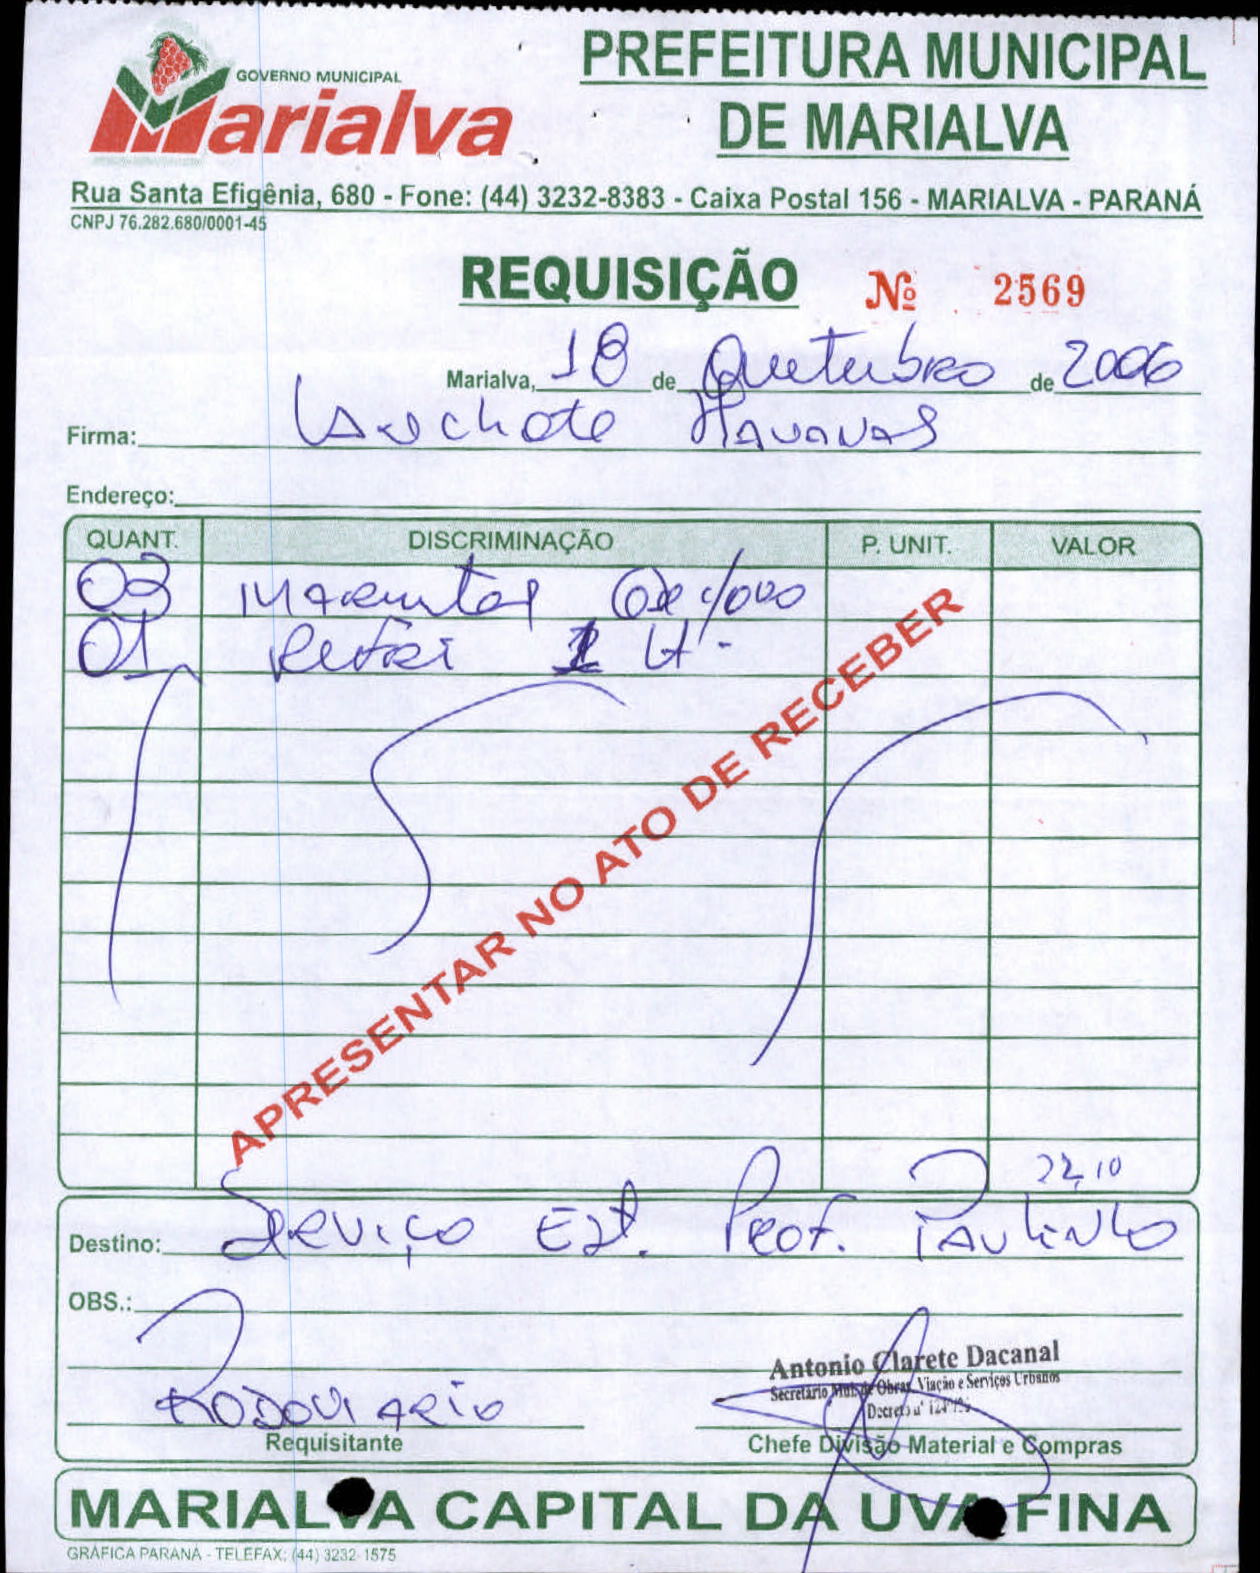 GOVERNO MUNICIPAL
Marialva
PREFEITURA MUNICIPAL
DE MARIALVA
Rua Santa Efigênia, 680 - Fone: (44) 3232-8383 - Caixa Postal 156 - MARIALVA - PARANÁ
CNPJ 76.282.680/0001-45
REQUISIÇÃO Nº 2569
Marialva, 18 de Outubro de 2006
Firma: Lanchote Havanas
Endereço:
QUANT. DISCRIMINAÇÃO P. UNIT. VALOR
03 Marmitas
01 Refri 2 Lt.
APRESENTAR NO ATO DE RECEBER
22,10
Destino: Serviço Est. Prof. Paulinho
OBS.:
Antonio Clarete Dacanal
Secretário Mun. de Obras, Viação e Serviços Urbanos
Decreto nº
Rodoviario
Requisitante
Chefe Divisão Material e Compras
MARIALVA CAPITAL DA UVA FINA
GRÁFICA PARANÁ - TELEFAX: (44) 3232-1575